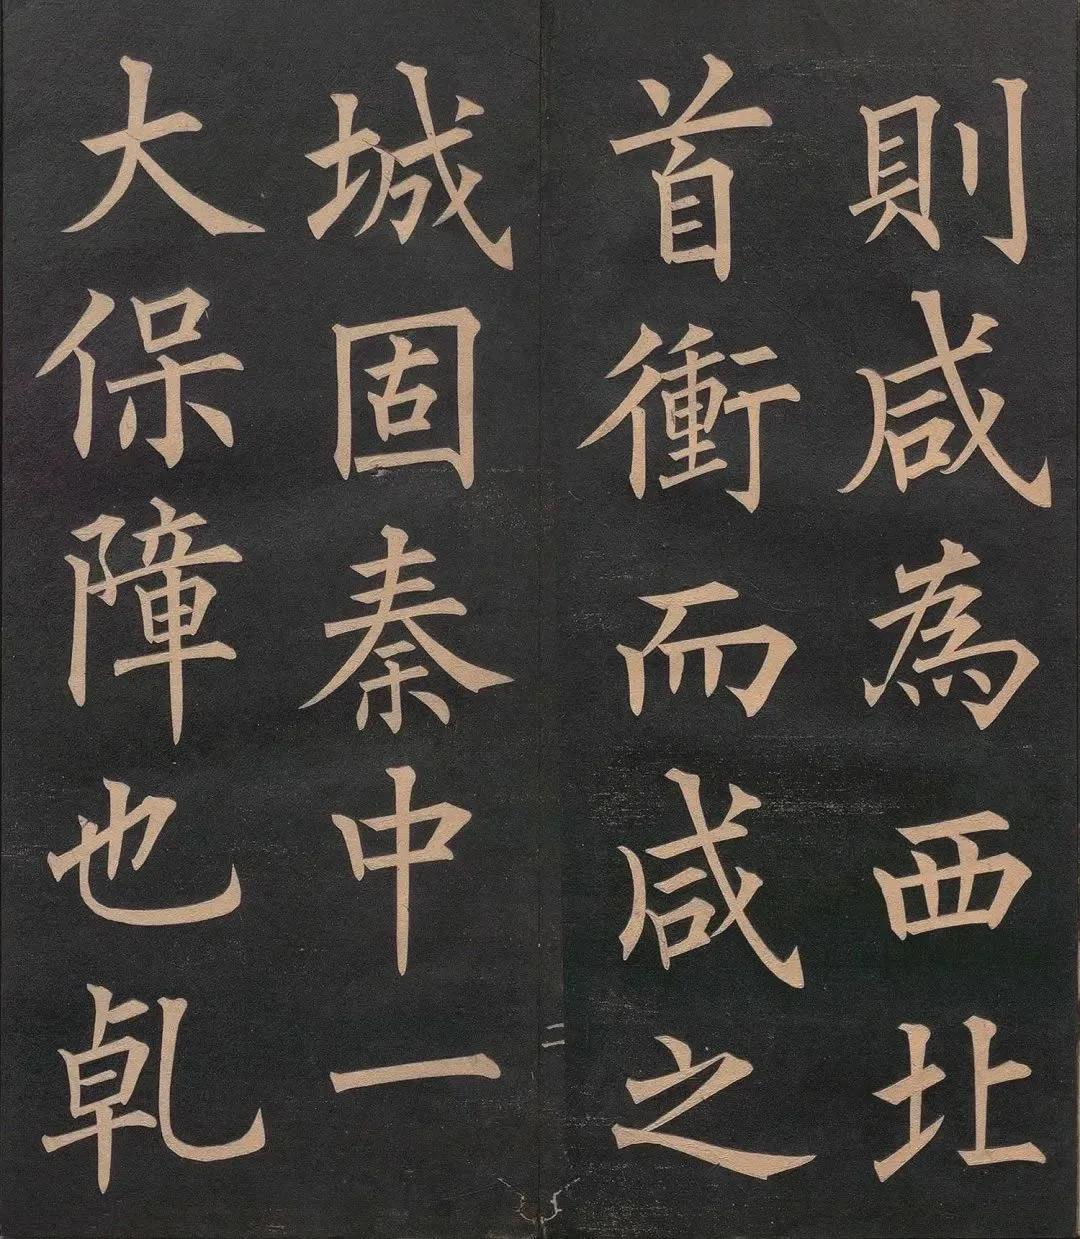 則咸為西北
首衝而咸之
城固秦中一
大保障也乹